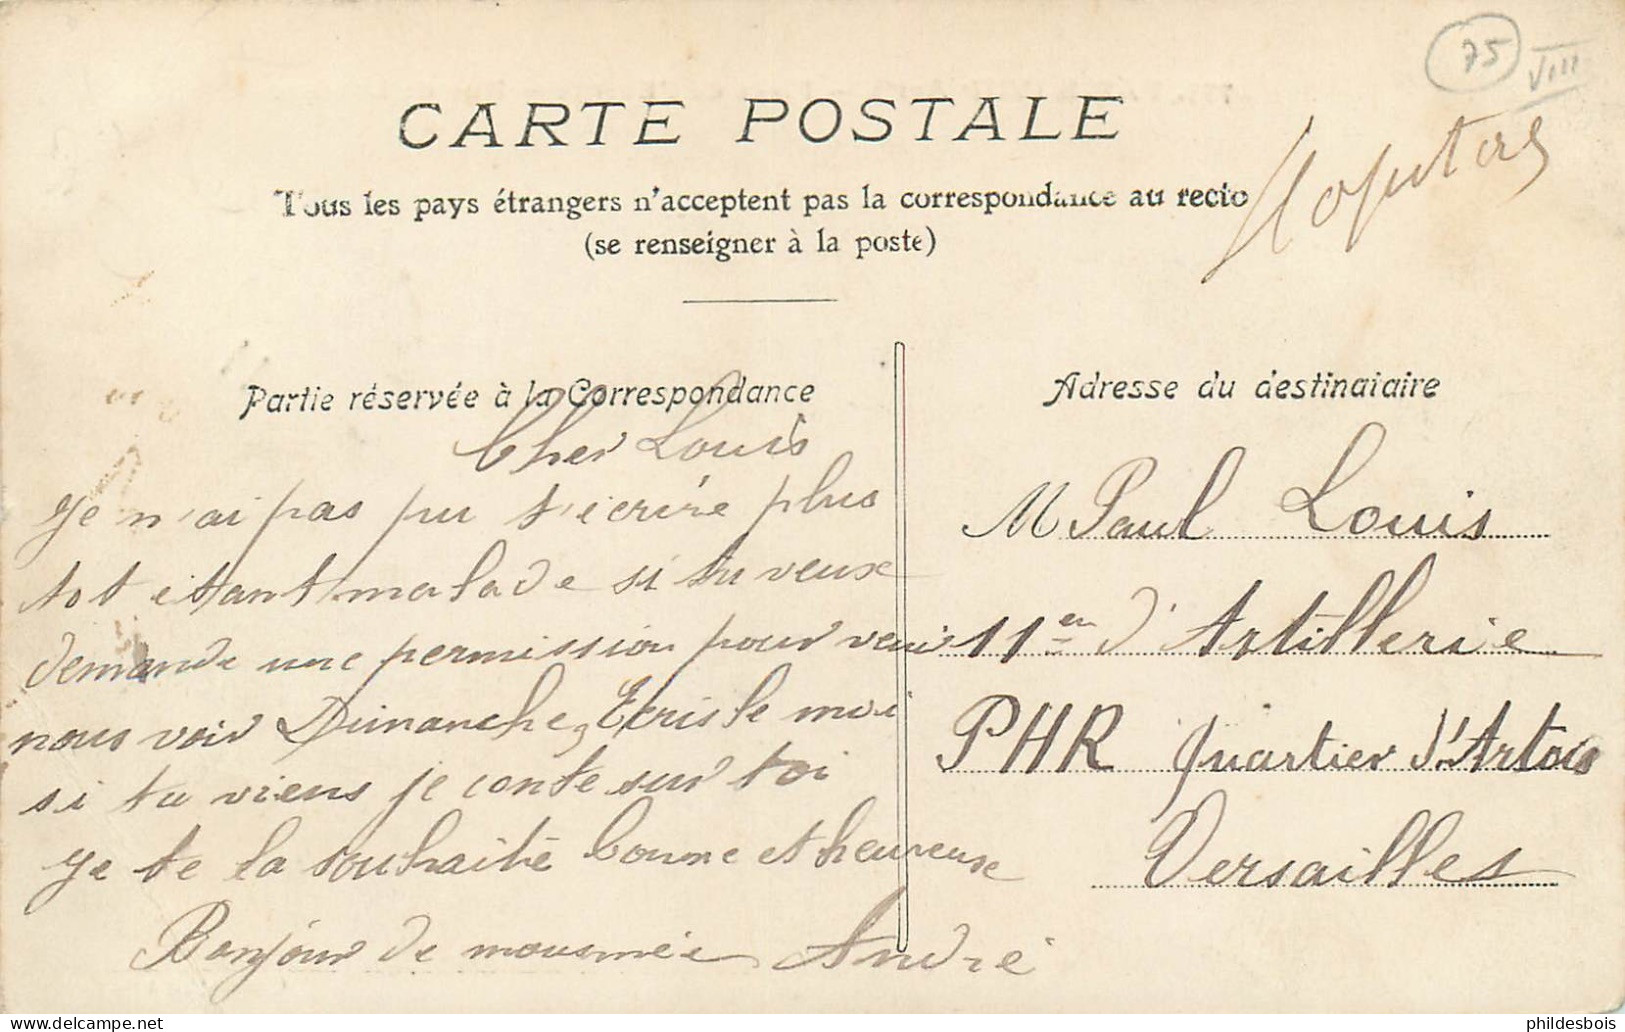 75
VIII
CARTE POSTALE
Tous les pays étrangers n'acceptent pas la correspondance au recto
(se renseigner à la poste)
Partie réservée à la Correspondance
Cher Louis
Je n'ai pas pu t'ecrire plus
tot etant malade si tu veux
demande une permission pour venir
nous voir Dimanche, Ecris le moi
si tu viens je conte sur toi
Je te la souhaite bonne et heureuse
Bonjour de mousmée André
Adresse du destinataire
M Paul Louis
11en d'Artillerie
PHR Quartier d'Artois
Versailles
phildesbois